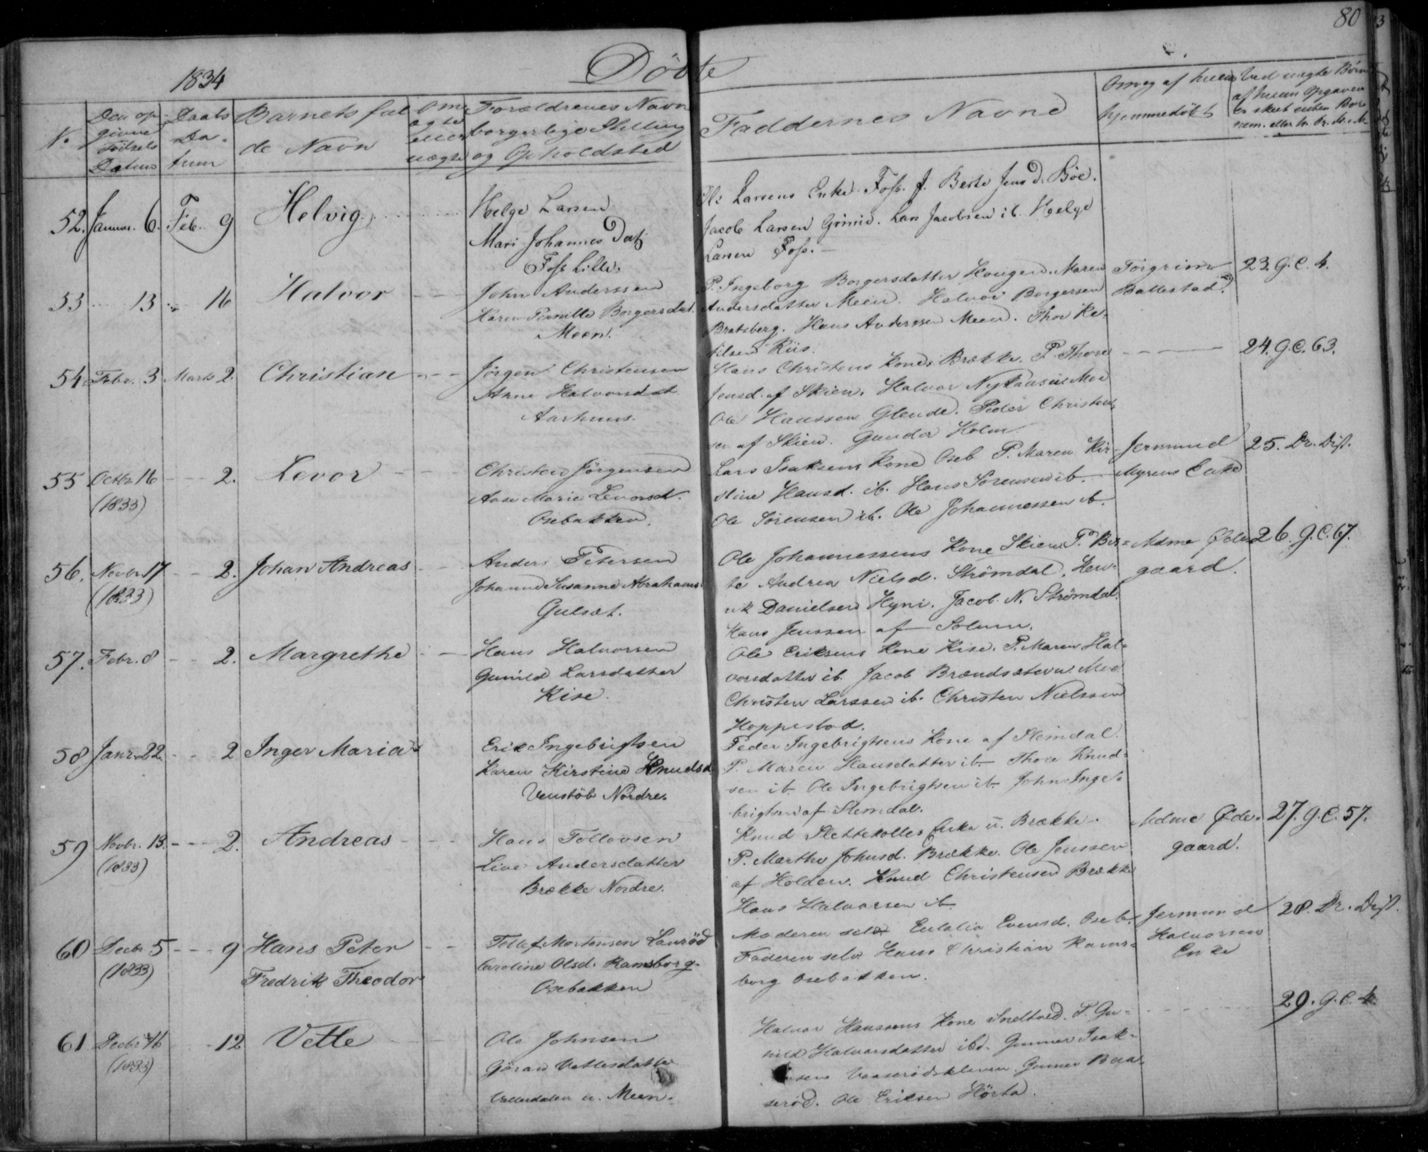 80
1834 Døbte
N. Den opgivne Fødsels Datum Daabs Datum Barnets fulde Navn Om ægte eller uægte Forældrenes Navn borgerlige Stilling og Opholdsted Faddernes Navne Omvg af hvem hjemmedøbt Ved uægte Børn af hvem Opgaven er skeet
52. Januar. 6. Feb. 9 Helvig
Helge Larsen
Mari Johannes Datt
Foss Lille.
Larsens Enke Foss. J. Berte Jens D. Bøe.
Jacob Larsen Grinid. Lars Jacobsen ib. Helge
Larsen Foss.
53 13 16 Halvor
John Anderssen
Karen Pernille Borgersdat.
Meen.
P. Ingeborg Borgersdatter Hougen. Maren
Andersdatter Meen. Halvor Borgersen
Bratsberg. Hans Anderssen Meen. Thor Ke-
tilsen Riis.
Torgrim
Ballestad
23. G. C. 4.
54 Febr. 3 Marts 2. Christian
Jørgen Christensen
Anne Halvorsdat
Aarhuus
Hans Christens Kone Brække P. Thore
Jensd. af Skien. Halvor Moe
Ole Hanssen Glende. Peder Christen-
sen af Skien. Gunder Holm
24. G. C. 63.
55 Octbr 16 (1833) 2. Levor
Christen Jørgensen
Anne Maria Levorsd.
Osebakken.
Lars Isaksens Kone Oseb. P. Maren Kir-
stine Hansd. ib. Hans Sørensen ib.
Ole Sørensen ib. Ole Johannessen ib
Jermund
Myrens Enke
25. Dr. Dist.
56. Novbr 17 (1833) 2. Johan Andreas
Anders Petersen
Johanne Susanne Abrahams
Gulset.
Ole Johannessens Kone Skien P. Ber-
te Andrea Nielsd. Strømdal. Hen-
rik Danielsen Hyni. Jacob N. Strømdal.
Hans Jenssen af Solum.
Mdme Øde-
gaard.
26. G. C. 67.
57. Febr. 8 2. Margrethe
Hans Halvorsen
Gunild Larsdatter
Kise.
Ole Eriksens Kone Kise. P. Maren Hal-
vorsdatter ib Jacob Brændsæteren Moe
Christen Larssen ib. Christen Nielssen
Hoppestad.
58 Janr. 22 2 Inger Maria
Erik Ingebrigtsen
Karen Kirstine Knudsd
Venstøb Nordre.
Peder Ingebrigtsens Kone af Slemdal.
P. Maren Hansdatter ib Thor Knud-
sen ib Ole Ingebrigtsen ib John Inge-
brigtsen af Slemdal.
59 Novbr. 13. (1833) 2. Andreas
Hans Tollevsen
Live Andersdatter
Brække Nordre.
Knud Slettekolles Enke u. Brække.
P. Marthe Johnsd. Brække. Ole Jenssen
af Holden. Knud Christensen Brække
Hans Halvorsen ib
Mdme Øde-
gaard.
27. G. C. 57.
60 Decbr 5 (1833) 9 Hans Peter
Fredrik Theodor
Tollef Mortensen Laurød
Caroline Olsd. Ramsborg.
Osebakken
Moderen selv Eulalia Evensd. Oseb.
Faderen selv Hans Christian Rams-
borg Osebakken.
Jermund
Halvorsens
Enke
28. Dr. Dist.
61 Decbr 16 (1833) 12 Vetle
Ole Johnsen
Gøran Vetlesdatter
u. Meen.
Halvor Hanssens Kone P. Gu-
nild Halvorsdatter ibd. Gunner Isak-
sens Gunner Baa-
serød. Ole Eriksen Hørta.
29. G. C. 4.